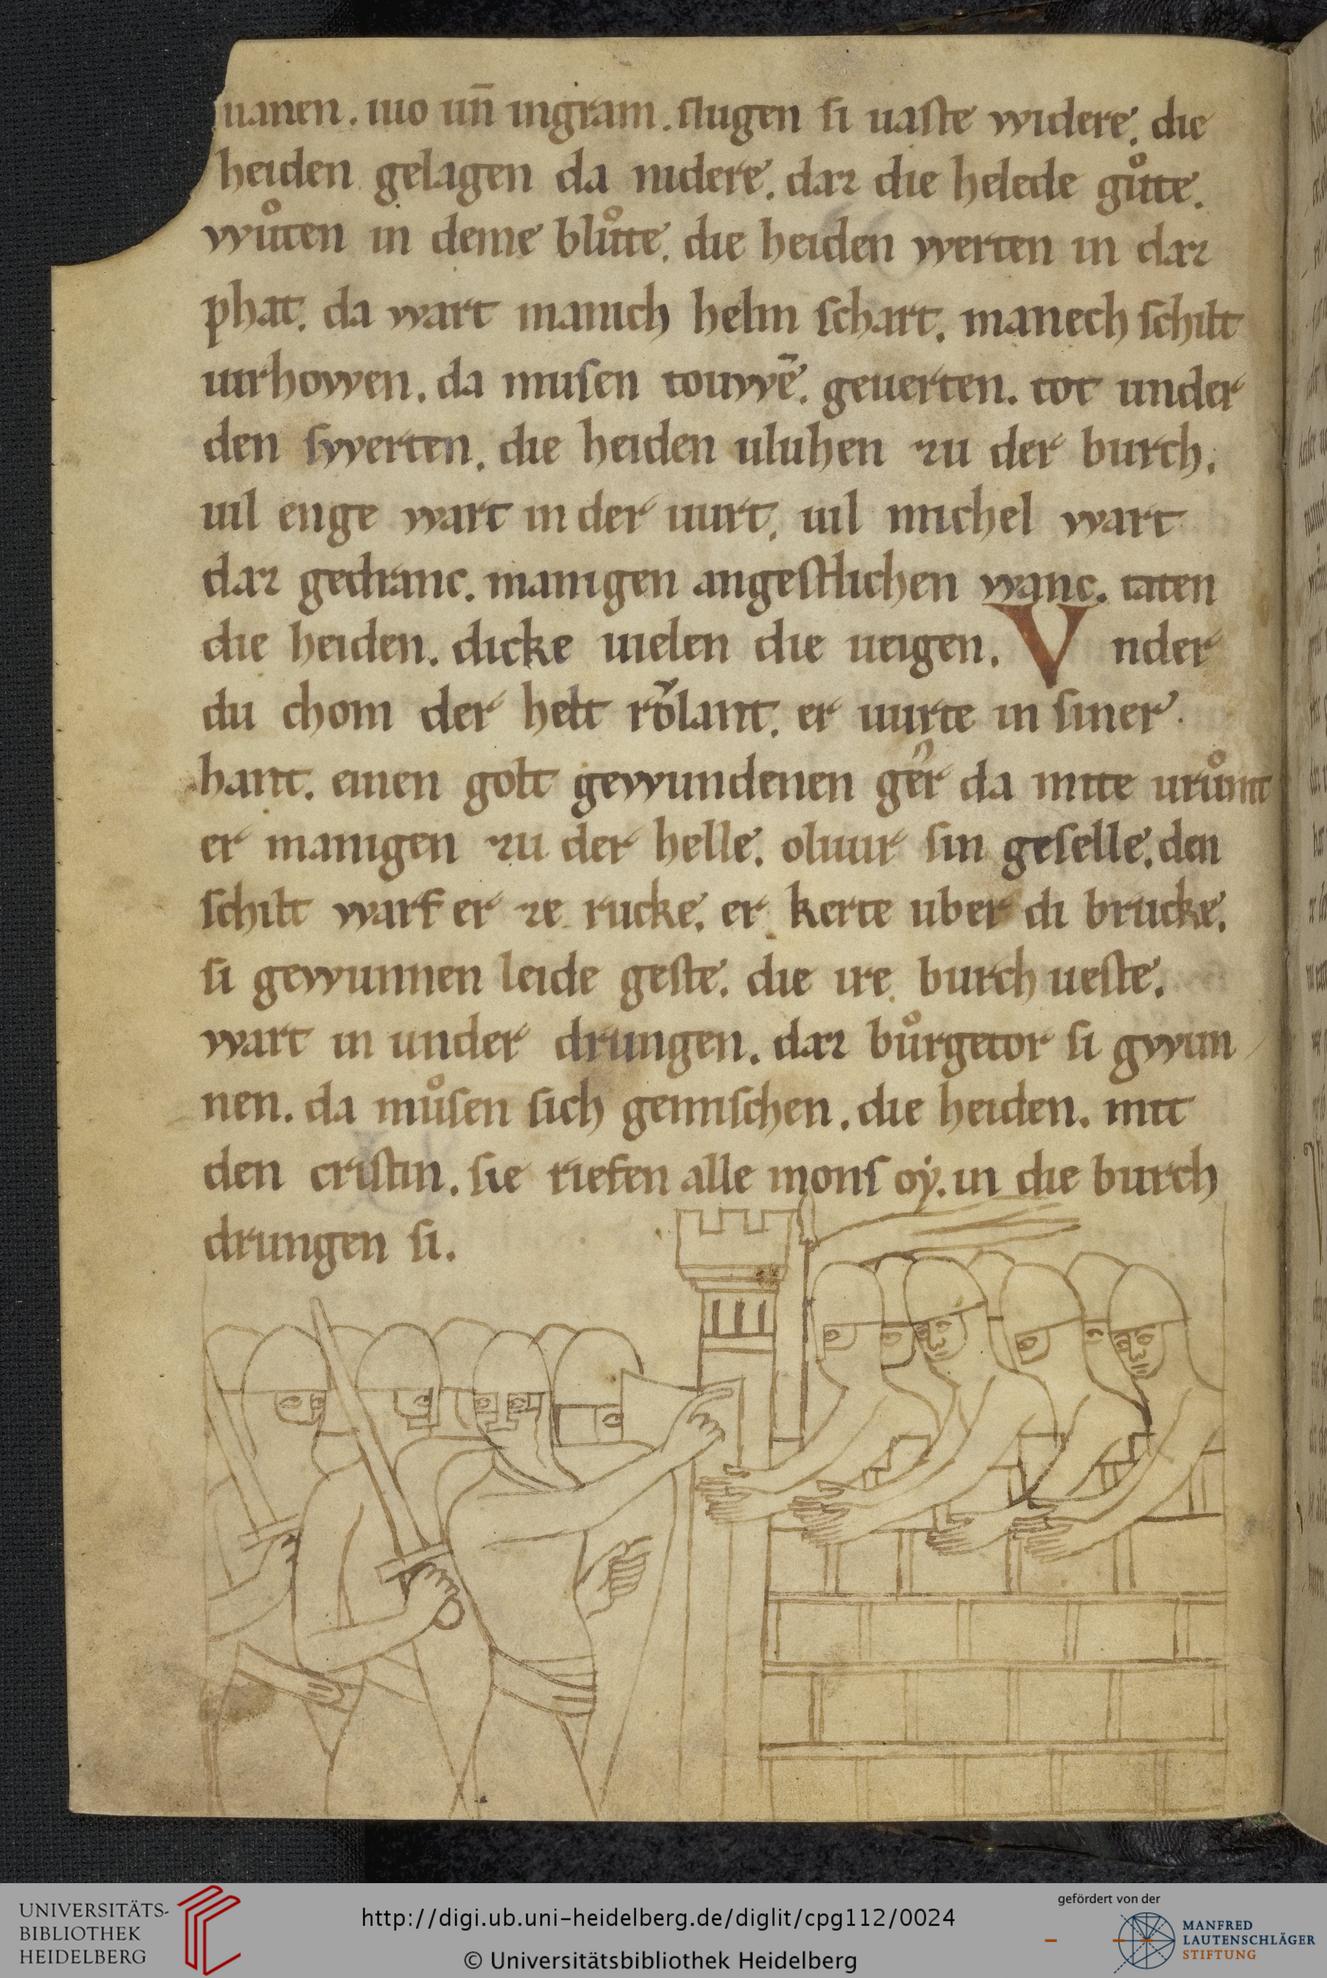 uanen. iuo un̄ ingram. slugen si uaste widere. die
heiden gelagen da nidere. daz die helede gůtte.
wůten in deme blůtte. die heiden werten in daz
phat. da wart manich helm schart. manech schilt
uirhowen. da musen touwē. geuerten. tot under
den swerten. die heiden uluhen zu der burch.
uil enge wart in der uurt. uil michel wart
daz gedranc. manigen angestlichen wanc. taten
die heiden. dicke uielen die ueigen. Vnder
du chom der helt rŏlant. er uurte in siner
hant. einen golt gewundenen gêr da mite urůmt
er manigen zu der helle. oliuir sin geselle. den
schilt warf er ze rucke. er kerte uber di brucke.
si gewunnen leide geste. die ire burch ueste.
wart in under drungen. daz bůrgetor si gwun
nen. da můsen sich gemischen. die heiden. mit
den cristin. sie riefen alle mons oẏ. in die burch
drungen si.
UNIVERSITÄTS-
BIBLIOTHEK
HEIDELBERG
http://digi.ub.uni-heidelberg.de/diglit/cpg112/0024
© Universitätsbibliothek Heidelberg
gefördert von der
MANFRED
LAUTENSCHLÄGER
STIFTUNG